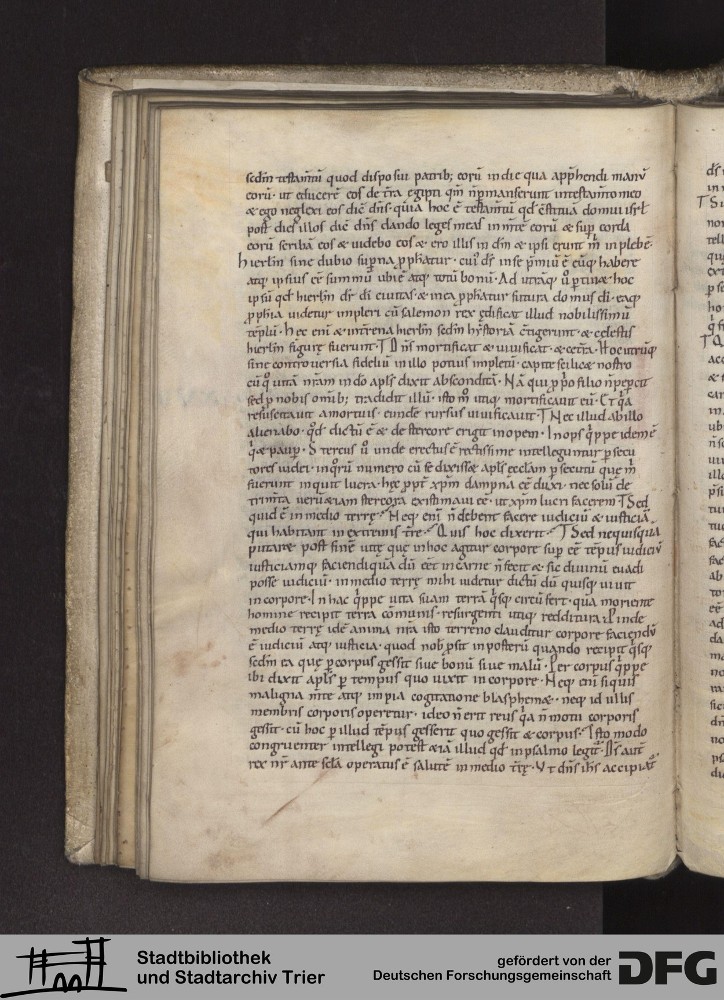 sedm testamtũ quod disposui patrib; eorũ in die qua apphendi manũ
eorũ · ut educerẽ eos de tra egipti qm̃ n̄ pmanserunt in testamto meo
& ego neglexi eos diẽ dn̄s · quia hoc ẽ testamtũ qd cstituã domui isrl
post dies illos diẽ dn̄s dando leges meas in mtẽ eorũ & sup corda
eorũ scribã eas & uidebo eos & ero illis in dm̄ & ipsi erunt m̄ in plebẽ ·
hierlm̄ sine dubio supna pphatur · cui dī in se pmiũ ẽ eũq; habere
atq; ipsius eẽ summũ ubi ẽ atq; totũ bonũ · Ad utraq; ũ ptin& hoc
ipsũ qd hierlm̄ dr̄ dī ciuitas & in ea pphatur futura domus dī · eaq;
pphia uidetur impleri cũ salemon rex ędificat illud nobilissimũ
templũ · Hec enī & in trena hierlm̄ sedm hystoriã ctigerunt · & celestis
hierlm̄ figurę fuerunt · Dn̄s mortificat & uiuificat · & cetra · Hoc utrũq;
sine controuersia fideliũ in illo potius impletũ · capite scilic& nostro
cũ quo uitã nram in dō apls dixit absconditã · Nã qui pprio filio n̄ pepcit
sed p nobis omib; tradidit illũ · isto m̄ utiq; mortificauit eũ · Et q̄a
resuscitauit a mortuis · eundẽ rursus uiuificauit · Nec illud ab illo
alienabo · qd dictũ ẽ & de stercore erigit inopem · Inops q̄ppe idem ẽ
q̄ & paup · Stercus ũ unde erectus ẽ rectissime intelleguntur psecu
tores iudei · in quorũ numero cũ se dixiss& apls ecclam psecutũ que m̄
fuerunt inquit lucra · hęc ppt xpm dampna eẽ duxi · nec solũ de
trimta uerũ&iam stercora existimaui eẽ · ut xpm lucri facerem Sed
quid ẽ in medio terrę · Neq; enī n̄ debent facere iudiciũ & iusticiã
qui habitant in extremis trę · Quis hoc dixerit · Sed nequaquã
putare post finẽ uitę que in hoc agitur corpore sup eẽ tẽpus iudicii
iusticiamq; faciendi quã dũ eẽt in carne n̄ fecit & sic diuinũ euadi
posse iudiciũ · in medio terrę mihi uidetur dictũ dũ quisq; uiuit
in corpore · In hac q̄ppe uita suam terrã q̄sq; circũfert · quã moriente
homine recipit terra cõmunis · resurgenti utiq; redditura · Pinde
medio terrę idẽ anima nra isto terreno clauditur corpore faciendũ
ẽ iudiciũ atq; iusticia · quod nob psit in posterũ quando recipit q̄sq;
sedm ea quę p corpus gessit siue bonũ siue malũ · Per corpus q̄ppe
ibi dixit apls p tempus quo uixit in corpore · Neq; enī si quis
maligna mte atq; impia cogitatione blasphem& · neq; id ullis
membris corporis operetur · ideo n̄ erit reus q̄a n̄ motu corporis
gessit · cũ hoc p illud tẽpus gesserit quo gessit & corpus · Isto modo
congruenter intellegi potest &iã illud qd in psalmo legit · Dī aut
rex nr ante sclã operatus ẽ salutẽ in medio trę · Ut dn̄s ih̄s accipiat
Stadtbibliothek
und Stadtarchiv Trier
gefördert von der
Deutschen Forschungsgemeinschaft
DFG